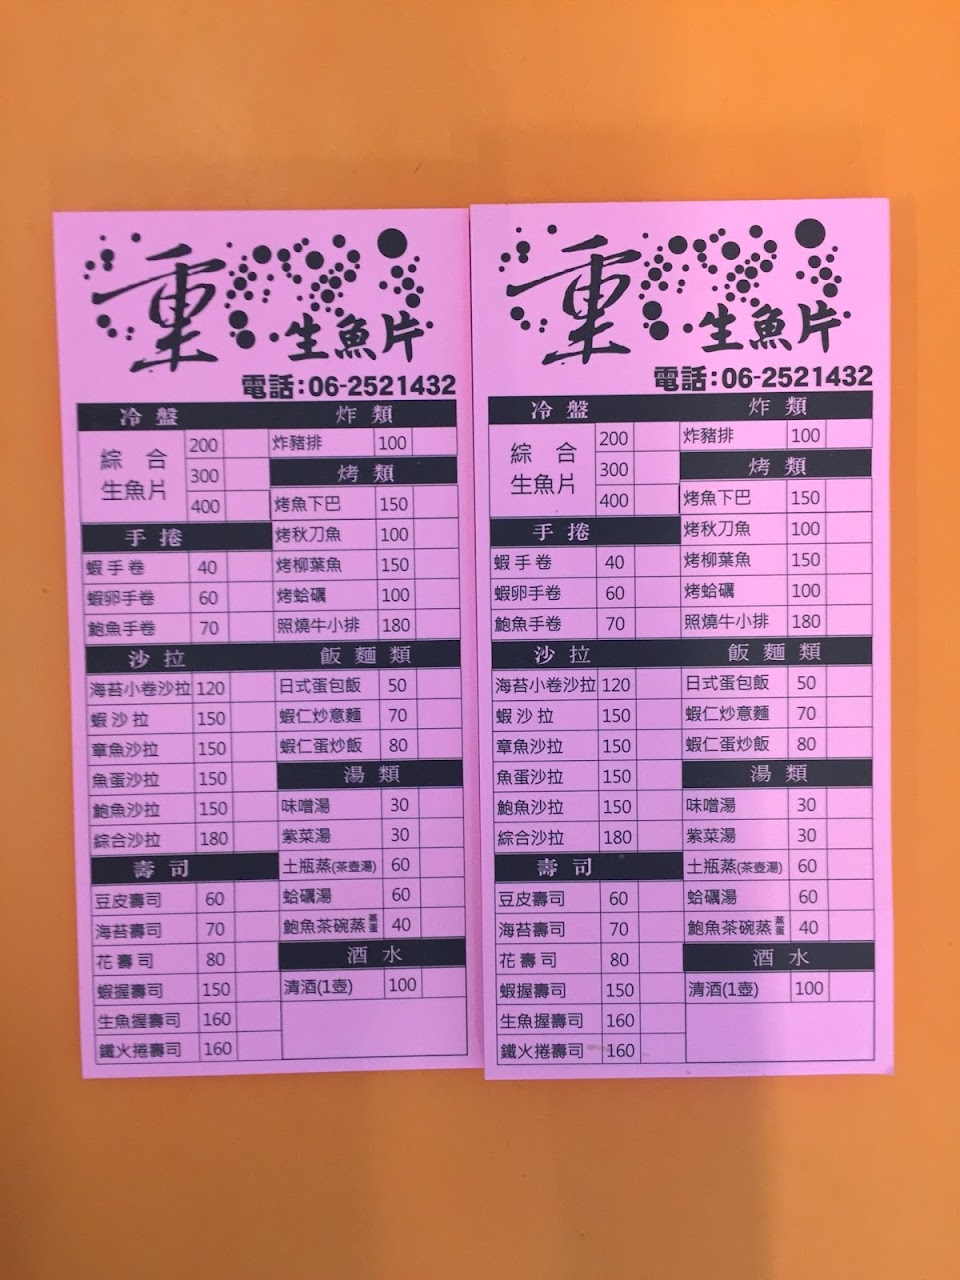 重
生魚片
電話:06-2521432
冷盤
綜合生魚片 200
300
400
手捲
蝦手卷 40
蝦卵手卷 60
鮑魚手卷 70
沙拉
海苔小卷沙拉 120
蝦沙拉 150
章魚沙拉 150
魚蛋沙拉 150
鮑魚沙拉 150
綜合沙拉 180
壽司
豆皮壽司 60
海苔壽司 70
花壽司 80
蝦握壽司 150
生魚握壽司 160
鐵火捲壽司 160
炸類
炸豬排 100
烤類
烤魚下巴 150
烤秋刀魚 100
烤柳葉魚 150
烤蛤礪 100
照燒牛小排 180
飯麵類
日式蛋包飯 50
蝦仁炒意麵 70
蝦仁蛋炒飯 80
湯類
味噌湯 30
紫菜湯 30
土瓶蒸(茶壺湯) 60
蛤礪湯 60
鮑魚茶碗蒸蒸蛋 40
酒水
清酒(1壺) 100
重
生魚片
電話:06-2521432
冷盤
綜合生魚片 200
300
400
手捲
蝦手卷 40
蝦卵手卷 60
鮑魚手卷 70
沙拉
海苔小卷沙拉 120
蝦沙拉 150
章魚沙拉 150
魚蛋沙拉 150
鮑魚沙拉 150
綜合沙拉 180
壽司
豆皮壽司 60
海苔壽司 70
花壽司 80
蝦握壽司 150
生魚握壽司 160
鐵火捲壽司 160
炸類
炸豬排 100
烤類
烤魚下巴 150
烤秋刀魚 100
烤柳葉魚 150
烤蛤礪 100
照燒牛小排 180
飯麵類
日式蛋包飯 50
蝦仁炒意麵 70
蝦仁蛋炒飯 80
湯類
味噌湯 30
紫菜湯 30
土瓶蒸(茶壺湯) 60
蛤礪湯 60
鮑魚茶碗蒸蒸蛋 40
酒水
清酒(1壺) 100